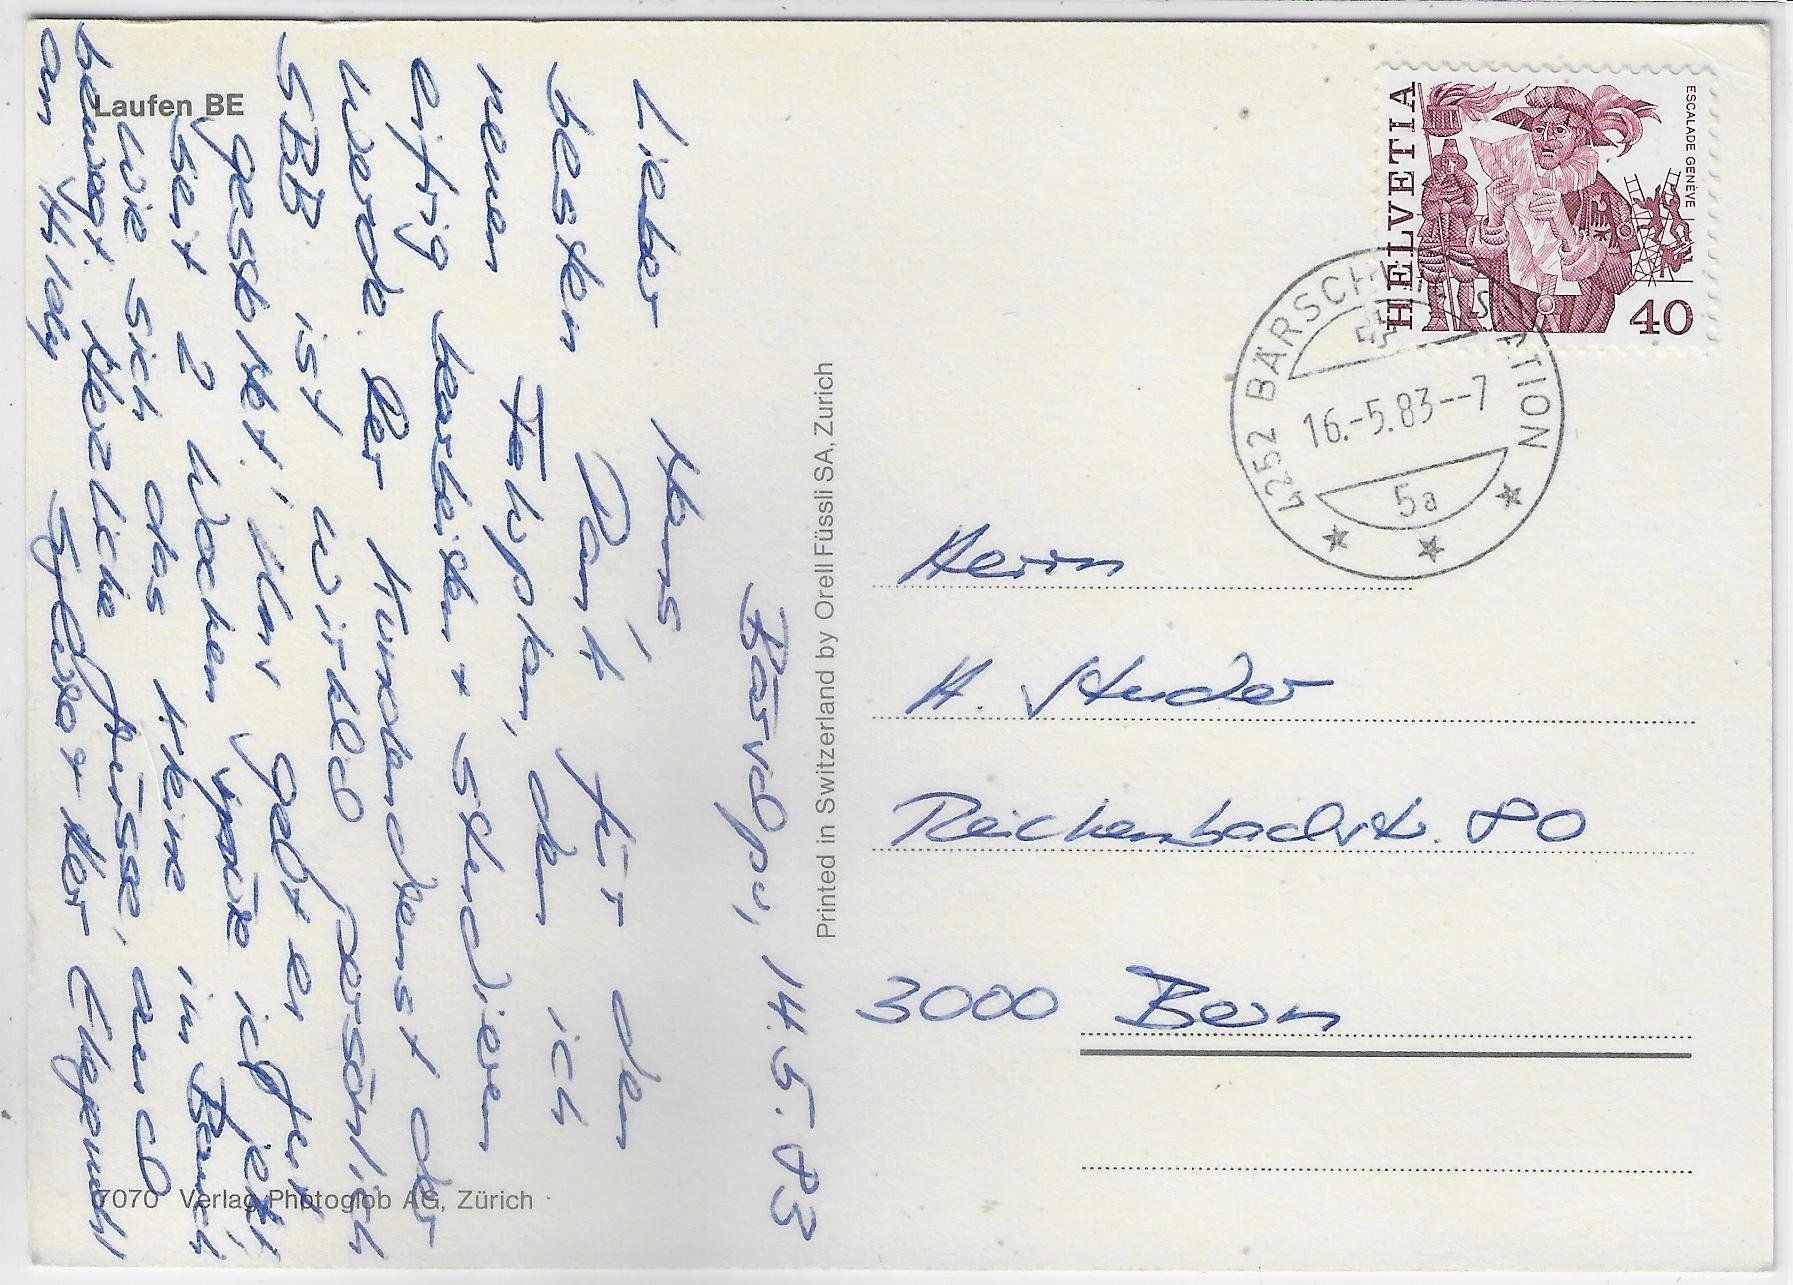 Laufen BE
Bärschw, 14.5.83
Lieber Hans,
besten Dank für den
neuen Fahrplan, den ich
eifrig bearbeiten + studieren
werde. Der Kundendienst der
SBB ist wirklich persönlich
gestaltet! Uns geht es gut
Seit 2 Wochen spüre ich jetzt,
wie sich das kleine im Bauch
bewegt. Herzliche Grüsse, auch
am Hildy
7070 Verlag Photoglob AG, Zürich
Printed in Switzerland by Orell Füssli SA, Zurich
HELVETIA
ESCALADE GENÈVE
40
4252 BÄRSCHWIL STATION
16.-5.83--7
5a
Herrn
H. Studer
Reichenbachstr. 80
3000 Bern